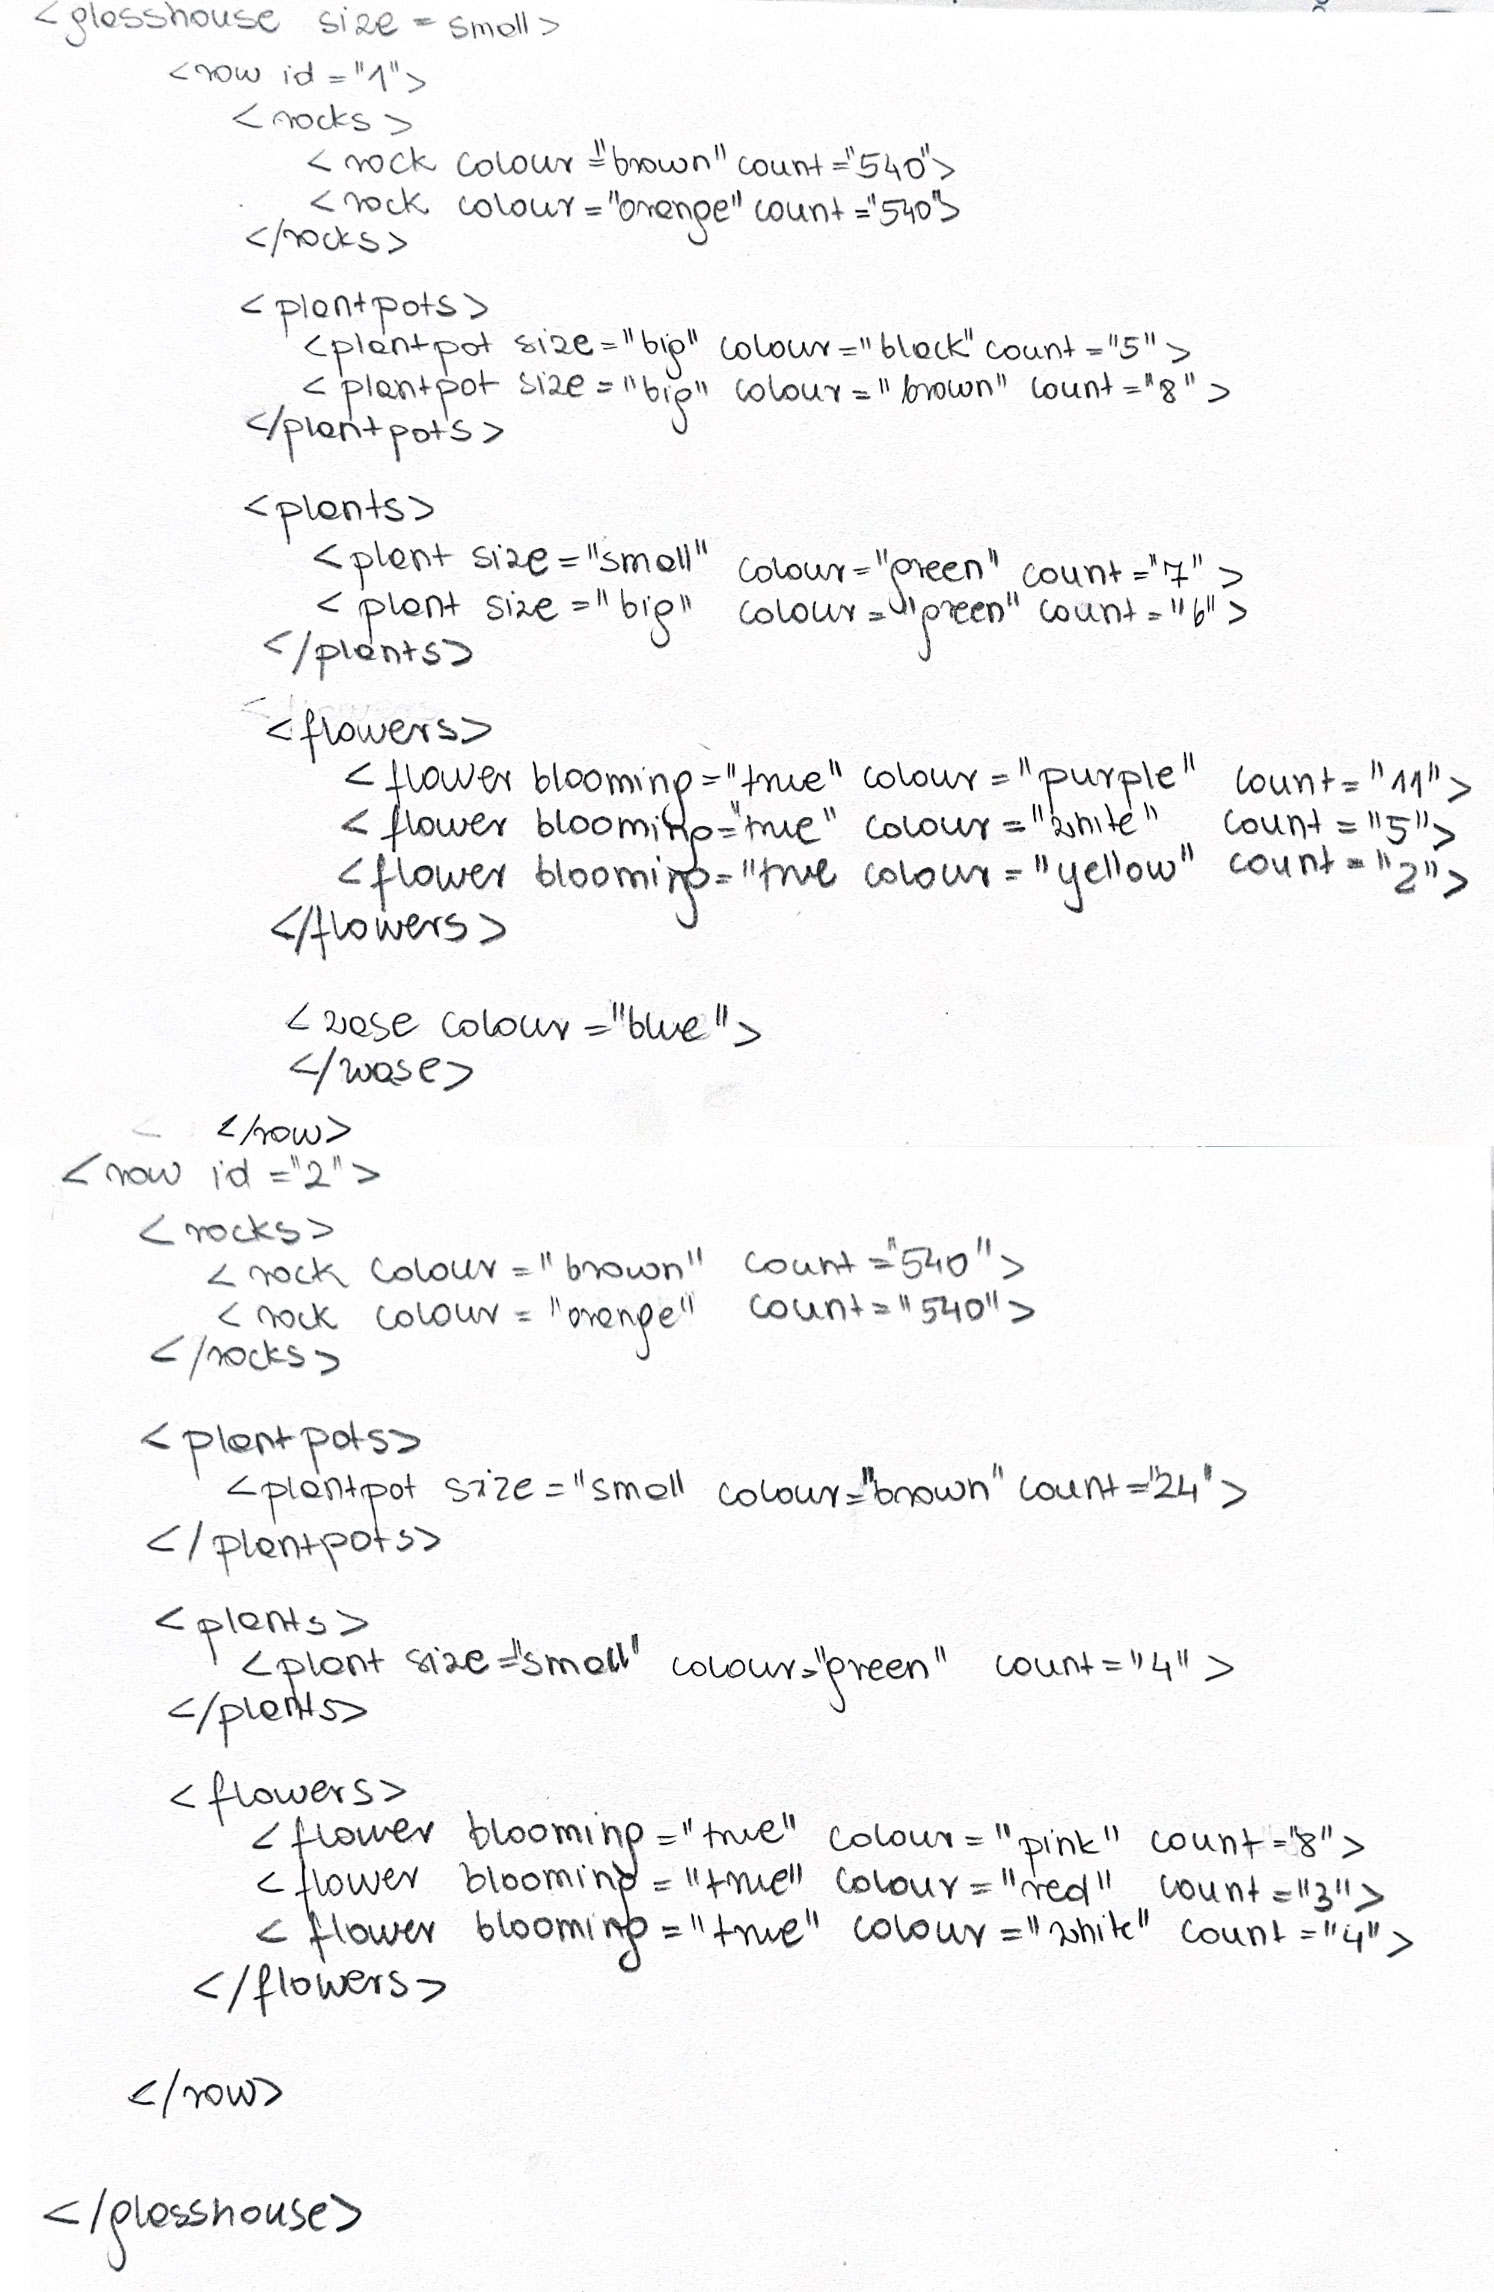 <glasshouse size = small>
<row id = "1">
<rocks>
<rock colour = "brown" count = "540">
<rock colour = "orange" count = "540">
</rocks>
<plantpots>
<plantpot size = "big" colour = "black" count = "5">
<plantpot size = "big" colour = "brown" count = "8">
</plantpots>
<plants>
<plant size = "small" colour = "green" count = "7">
<plant size = "big" colour = "green" count = "6">
</plants>
<flowers>
<flower blooming = "true" colour = "purple" count = "11">
<flower blooming = "true" colour = "white" count = "5">
<flower blooming = "true colour = "yellow" count = "2">
</flowers>
<vase colour = "blue">
</vase>
</row>
<row id = "2">
<rocks>
<rock colour = "brown" count = "540">
<rock colour = "orange" count = "540">
</rocks>
<plantpots>
<plantpot size = "small colour = "brown" count = "24">
</plantpots>
<plants>
<plant size = "small" colour = "green" count = "4">
</plants>
<flowers>
<flower blooming = "true" colour = "pink" count = "8">
<flower blooming = "true" colour = "red" count = "3">
<flower blooming = "true" colour = "white" count = "4">
</flowers>
</row>
</glasshouse>